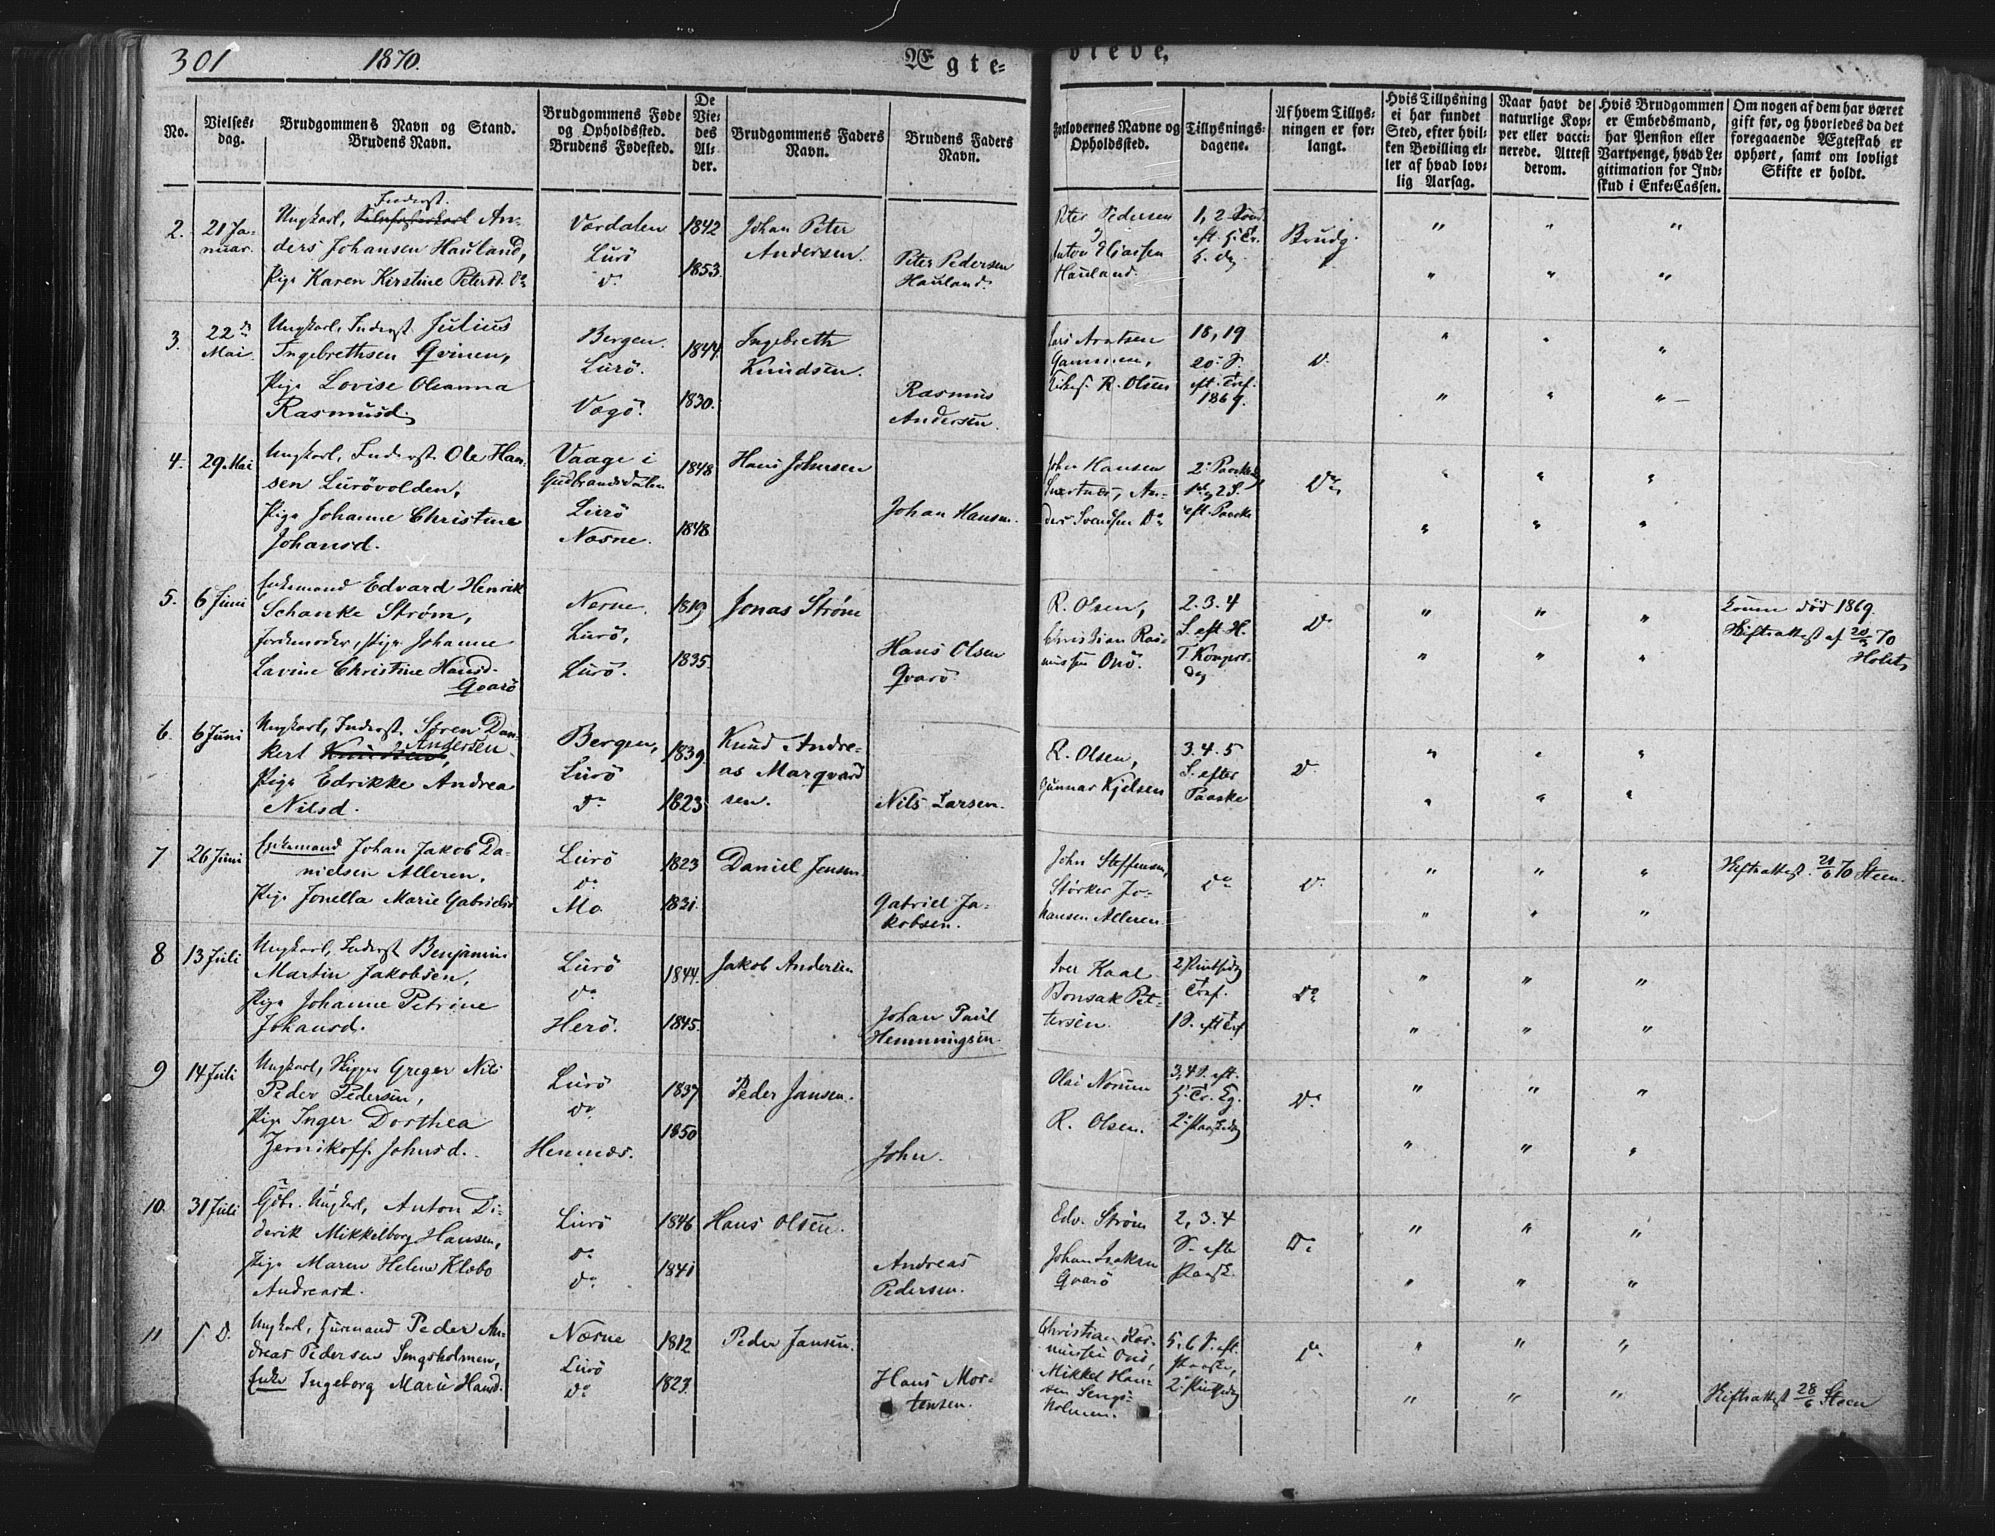 301
1870.
Ægte-
vieve.
No.
Vielses-
dag.
Brudgommens Navn og Stand.
Brudens Navn.
Brudgommens Føde
og Opholdssted.
Brudens Fødested.
De
Vie-
des
Al-
der.
Brudgommens Faders
Navn.
Brudens Faders
Navn.
Forlovernes Navne og
Opholdssted.
Tillysnings-
dagene.
Af hvem Tillys-
ningen er for-
langt.
Hvis Tillysning
ei har fundet
Sted, efter hvil-
ken Bevilling el-
ler af hvad lov-
lig Aarsag.
Naar havt de
naturlige Kop-
per eller vacci-
nerede. Attest
derom.
Hvis Brudgommen
er Embedsmand,
har Pension eller
Vartpenge, hvad Le-
gitimation for Ind-
skud i Enke-Cassen.
Om nogen af dem har været
gift før, og hvorledes da det
foregaaende Ægteskab er
ophørt, samt om lovligt
Skifte er holdt.
2.
21 Ja-
nuar.
Inderst.
Ungkarl, An-
ders Johansen Hauland,
Pige Karen Kirstine Petersd. do
Værdalen
Lurö
do
1842
1853.
Johan Peter
Andersen.
Peter Pedersen
Hauland.
Peter Pedersen
Anton Eliassen
Hauland.
1, 2 Sønd.
eft. H. 3 K.
Brudg.
3.
22de
Mai.
Ungkarl, Inderst Julius
Ingebrethsen Qvinen,
Pige Lovise Oleanna
Rasmusd.
Bergen.
Lurö.
Vægö.
1844.
1830.
Ingebreth
Knudsen.
Rasmus
Andersen.
Lars Arntsen
Gammen,
R. Olsen
18, 19
20. S.
eft. Tref.
1869.
Do
4.
29. Mai
Ungkarl, Inderst Ole Han-
sen Lurövolden,
Pige Johanne Christine
Johansd.
Vaage i
Gudbrandsdalen
Lurö
Næsne.
1848
1848.
Hans Johnsen
Johan Hansen.
John Hansen
An-
ders Svendsen Do
2. Paaskedg
1st, 2 S.
eft. Paaske
Do
5.
6 Juni
Enkemand Edvard Henrik
Schanke Strøm,
Jordemoder, Pige Johanne
Lavine Christine Hansd.
Qvarö
Nesne.
Lurö,
Lurö.
1819
1835.
Jonas Strøm
Hans Olsen
Qvarö
R. Olsen,
Christian Ras-
mussen Onö.
2. 3. 4
S. eft. H.
3 Konger-
dag
Do
Konen död 1869.
Skifteattest af 20/5 70
Holst,
6.
6 Juni
Ungkarl, Inderst. Sören Dan-
kert Knudsen, Andersen
Pige Edrikke Andrea
Nilsd.
Bergen,
Lurö
do
1839.
1823
Knud Andre-
as Marqvard
sen.
Nils Larsen.
R. Olsen,
Gunnar Kjelsen
3. 4. 5
S. efter
Paaske
Do
7
26 Juni
Enkemand Johan Jakob Da-
nielsen Alleren,
Pige Jonella Marie Gabrielsd.
Lurö
do
Mo.
1823
1821.
Daniel Jensen
Gabriel Ja-
kobsen.
John Steffensen,
Störker Jo-
hansen Alleren
do
Do
Skifteattest. 20/6 70 Steen.
8
13 Juli
Ungkarl, Inderst Benjamin
Martin Jakobsen,
Pige Johanne Petrine
Johansd.
Lurö
do
Herö.
1844.
1845.
Jakob Andersen
Johan Paul
Hemmingsen
Iver Kaal
Bonsak Pet-
tersen.
2 Pintsedg
Tref.
1 S. eft Tref
Do
9
14 Juli
Ungkarl, Skipper Greger Nils
Peder Pedersen,
Pige Inger Dorthea
Jernikoff Johnsd.
Lurö
do
Hemnes.
1837
1850
Peder Jansen.
John.
Olai Norum
R. Olsen.
3, 4 S. eft.
2. Paaskedg
Do
10.
31 Juli
Gbr. Ungkarl, Anton Di-
derik Mikkelborg Hansen,
Pige Maren Helene Klæbo
Andreasd.
Lurö
do
do
1846
1841
Hans Olsen.
Andreas
Pedersen.
Edv. Strøm
Johan Isaksen
Qvarö
2, 3. 4
S. efter
Paask.
Do
11
s. D.
Ungkarl, Huusmand Peder An-
dreas Pedersen Sengsholmen,
Enke Ingeborg Marie Hansd.
Næsne
Lurö
Do
1812
1823.
Peder Jansen.
Hans Mor-
tensen.
Christian Ras-
mussen Onö,
Mikkel Han-
sen Sengs-
holmen.
5, 6 S. eft.
Paaske,
2. Pintsedg
Do
Skifteattest 28/6 Steen